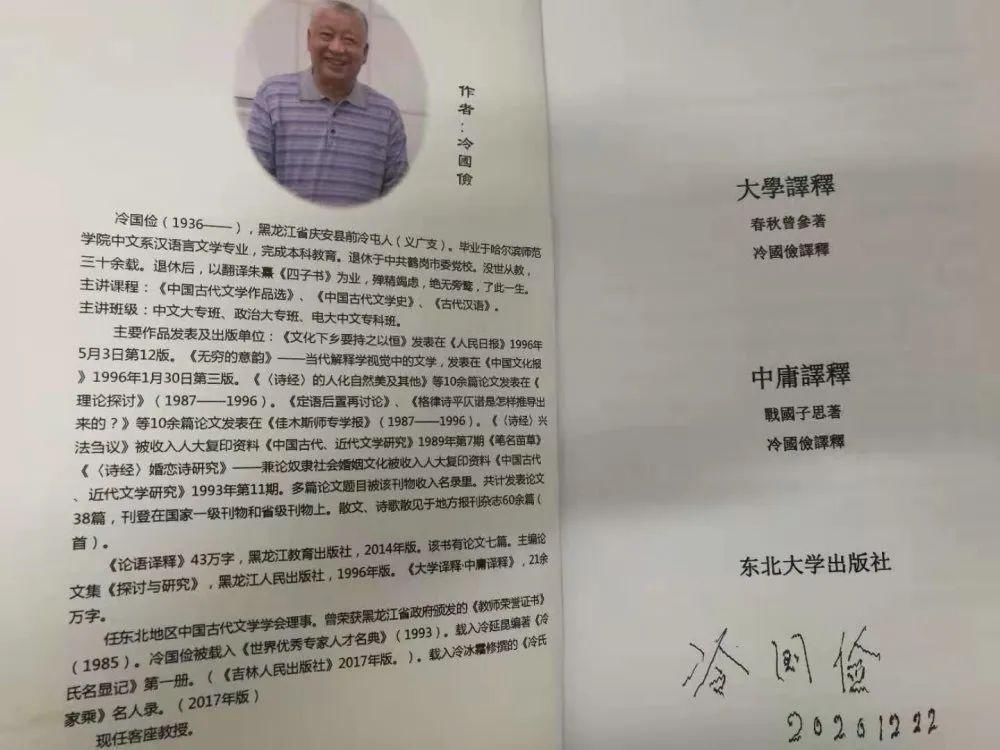 作者：冷國儉
冷国俭（1936——），黑龙江省庆安县前冷屯人（义广支）。毕业于哈尔滨师范
学院中文系汉语言文学专业，完成本科教育。退休于中共鹤岗市委党校。没世从教，
三十余载。退休后，以翻译朱熹《四子书》为业，殚精竭虑，绝无旁骛，了此一生。
主讲课程：《中国古代文学作品选》、《中国古代文学史》、《古代汉语》。
主讲班级：中文大专班、政治大专班、电大中文专科班。
主要作品发表及出版单位：《文化下乡要持之以恒》发表在《人民日报》1996年
5月3日第12版。《无穷的意韵》——当代解释学视觉中的文学，发表在《中国文化报
》1996年1月30日第三版。《〈诗经〉的人化自然美及其他》等10余篇论文发表在《
理论探讨》（1987——1996）。《定语后置再讨论》、《格律诗平仄谱是怎样推导出
来的？》等10余篇论文发表在《佳木斯师专学报》（1987——1996）。《〈诗经〉兴
法刍议》被收入人大复印资料《中国古代、近代文学研究》1989年第7期《笔名苗草》
《〈诗经〉婚恋诗研究》——兼论奴隶社会婚姻文化被收入人大复印资料《中国古代
、近代文学研究》1993年第11期。多篇论文题目被该刊物收入名录里。共计发表论文
38篇，刊登在国家一级刊物和省级刊物上。散文、诗歌散见于地方报刊杂志60余篇（
首）。
《论语译释》43万字，黑龙江教育出版社，2014年版。该书有论文七篇。主编论
文集《探讨与研究》，黑龙江人民出版社，1996年版。《大学译释·中庸译释》，21余
万字。
任东北地区中国古代文学学会理事。曾荣获黑龙江省政府颁发的《教师荣誉证书》
（1985）。冷国俭被载入《世界优秀专家人才名典》（1993）。载入冷延昆编著《冷
氏名显记》第一册。（《吉林人民出版社》2017年版。）。载入冷冰霜修撰的《冷氏
家乘》名人录。（2017年版）
现任客座教授。
大學譯釋
春秋曾參著
冷國儉譯釋
中庸譯釋
戰國子思著
冷國儉譯釋
东北大学出版社
冷国儉
20201222